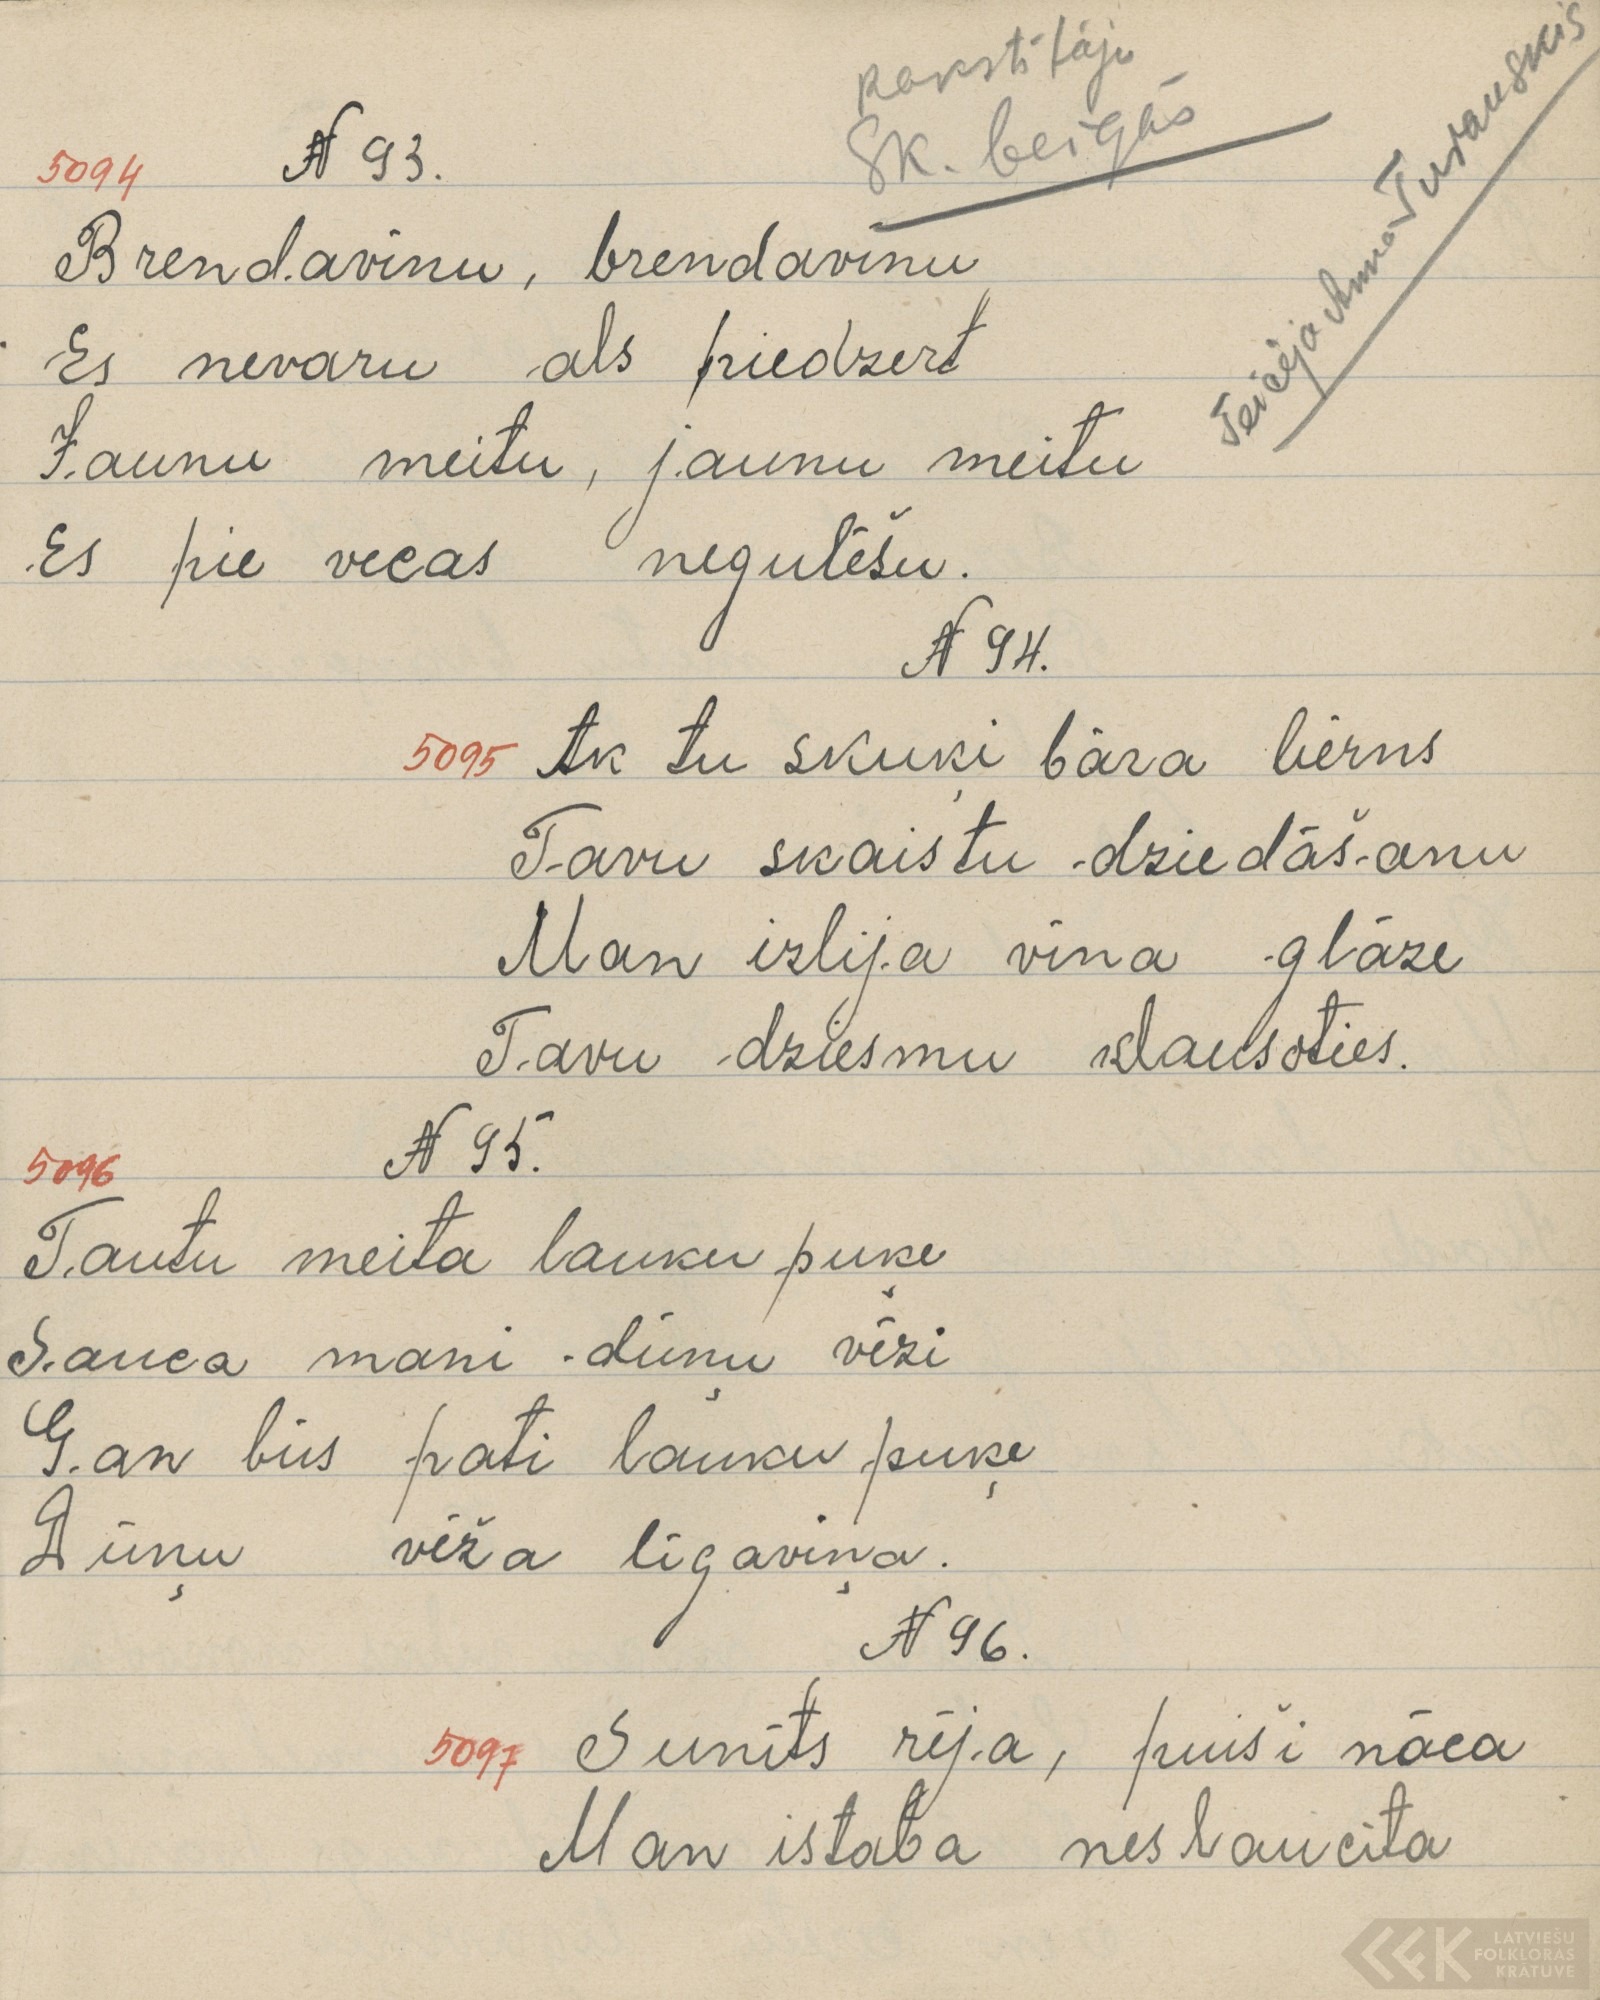 rakstītāju
Sk. beigās
Teicēja Anna Turauskis
5094 № 93.
Brendavīnu, brendavīnu
Es nevaru als piedzert
Jaunu meitu, jaunu meitu
Es pie vecas negulēšu.
№ 94.
5095 Ak tu skuķi bāra bērns
Tavu skaistu dziedāšanu
Man izlija vīna glāze
Tavu dziesmu klausoties.
5096 № 95.
Tautu meita lauku puķe
Sauca mani dūņu vēzi
Gan būs pati lauku puķe
Dūņu vēža līgaviņa.
№ 96.
5097 Sunīts rēja, puiši nāca
Man istaba neslaucīta
LATVIEŠU
FOLKLORAS
KRĀTUVE